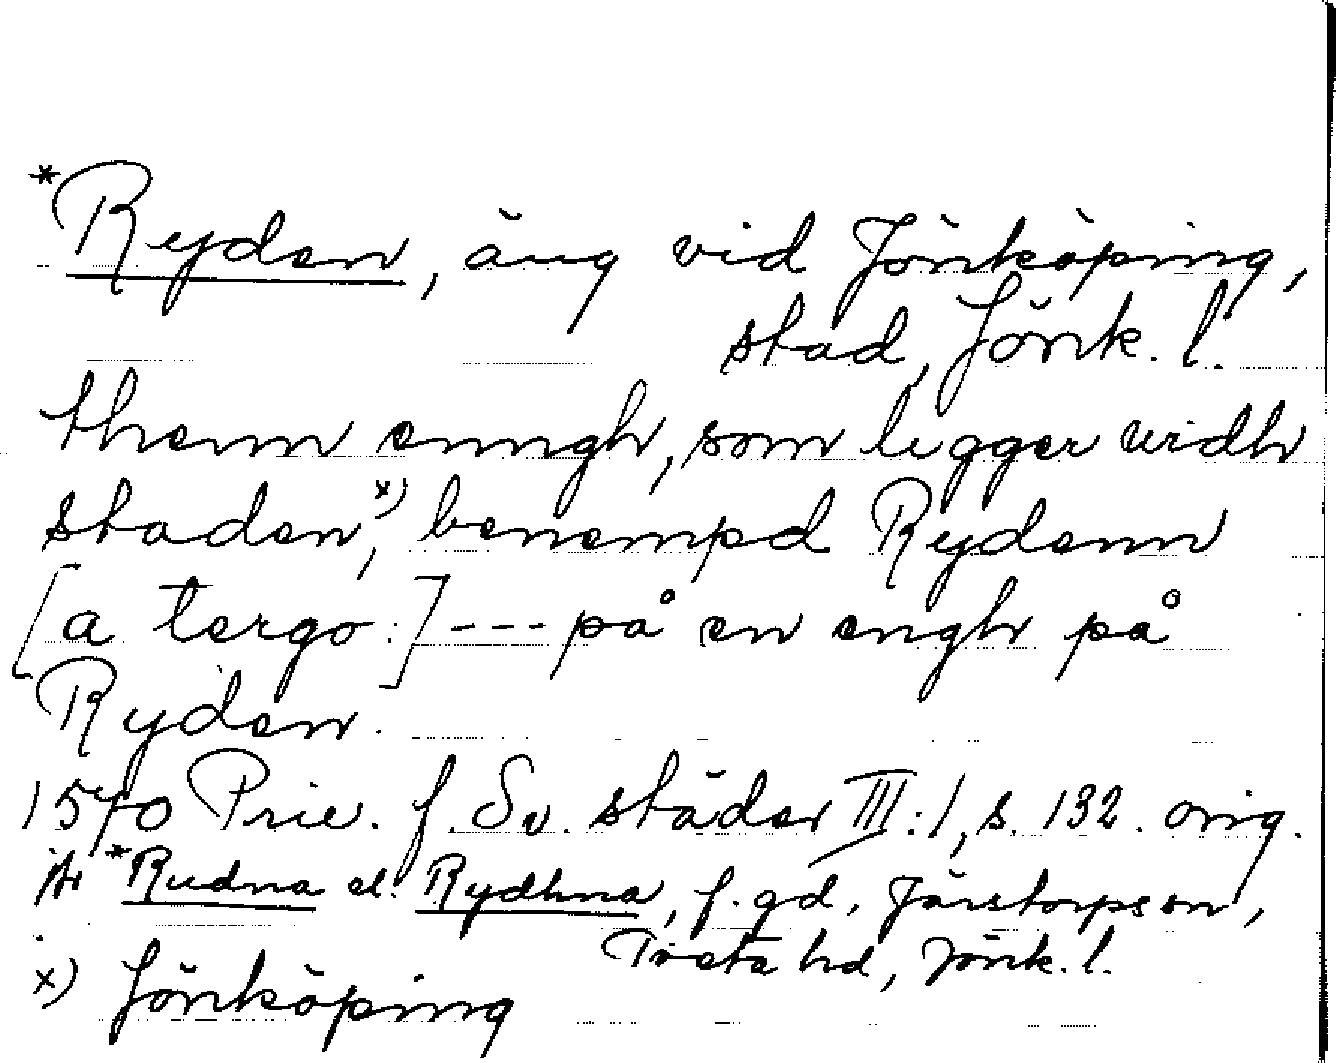 *Ryden, äng vid Jönköping,
stad, Jönk. l.
thenn enngh, som ligger vidh
staden,x) benempd Rydenn
[a tergo:] --- på en engh på
Ryden.
1570 Priv. f. Sv. städer III:1, s. 132. orig.
*Rudna el. Rydhna, f. gd, Järstorps sn,
Tveta hd, Jönk. l.
x) Jönköping